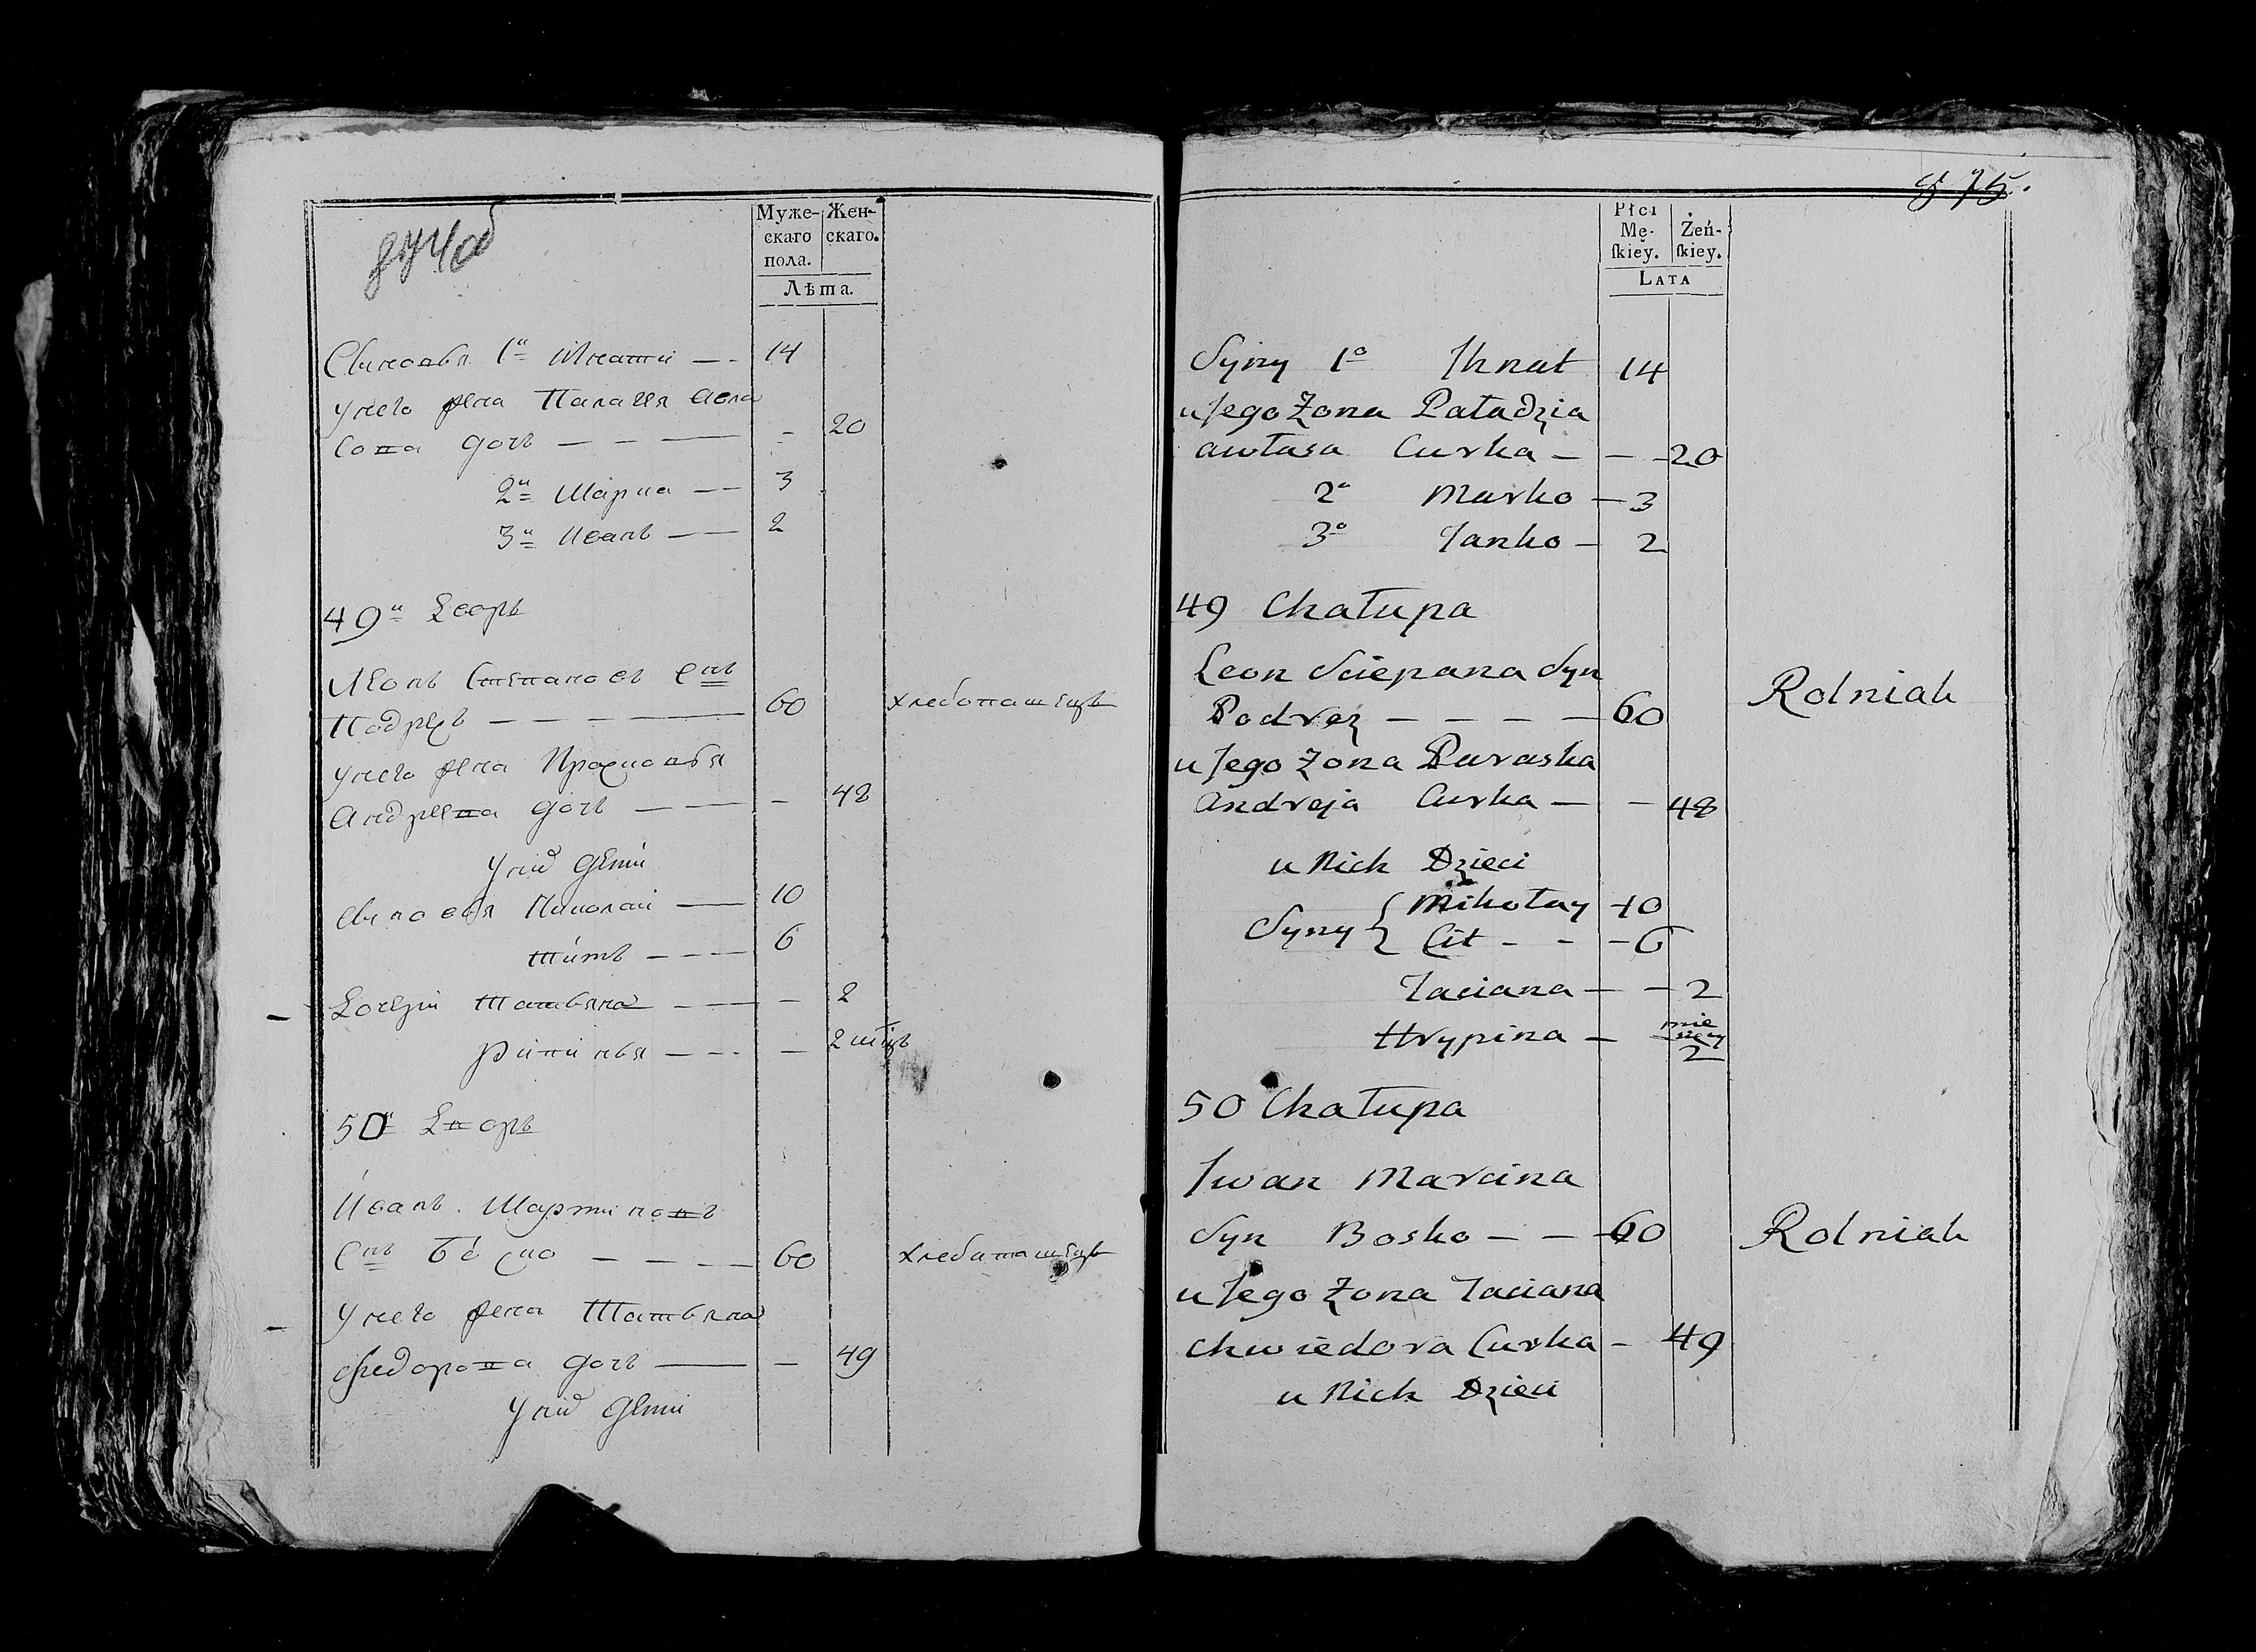 Муже-
скаго
пола.
Жен-
скаго.
Лѣта.
Сыновья 1й Игнатiй — - 14
у него жена Палагея Авла
сова дочь — - — - 20
2й Марко — - 3
3й Иванъ — - 2
49й Дворъ
Леонъ Степановъ Снъ
Подрезъ — - — - — 60 хлебопашецъ
у него жена Прасковья
Андреева дочь — — - 48
у нихъ дети
Сыновья Николай — 10
Титъ — - - - 6
Дочери Татьяна — - — - 2
- 2 мцъ
50й Дворъ
Иванъ Мартиновъ
Снъ Боско — - — - — 60 хлебапашецъ
у него жена Татьяна
Федорова дочь — - 49
у нихъ дети
75.
Płci
Mę-
ſkiey.
Żeń-
ſkiey.
LATA
Syny 1o Ihnat 14
u Jego Zona Paładzia
awłasa Curka — - - 20
2o Marko — 3
3o Janko — 2
49 Chałupa
Leon Sciepana Syn
Podrez — — — — 60 Rolniak
u Jego Zona Paraska
Andreja Curka — - 48
u Nich Dzieci
Syny { Mikołay 10
Cit - - - 6
Taciana — - 2
Hrypina — mie
sięcy
2
50 Chałupa
Iwan Marcina
Syn Bosko — — 60 Rolniak
u Jego Zona Taciana
Chwiedora Curka — 49
u Nich Dzieci